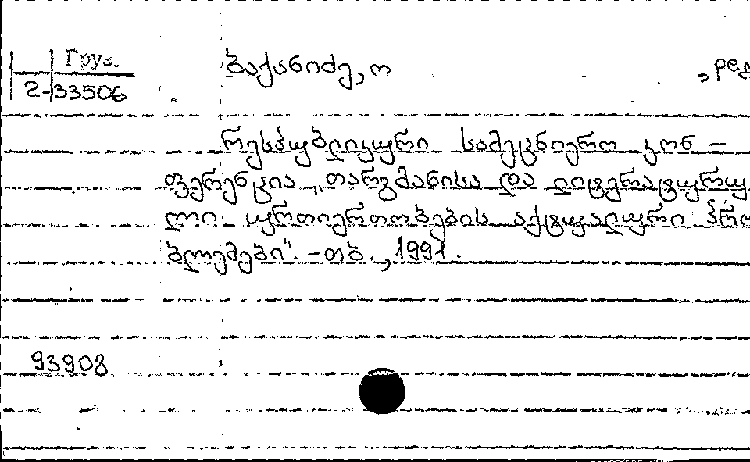 Груз.
2-33506
ბაქანიძე, ო , ред
რესპუბლიკური სამეცნიერო კონ –
ფერენცია „თარგმანისა და ლიტერატურუ
ლი ურთიერთობების აქტუალური პრო
ბლემები". – თბ., 1991.
93908